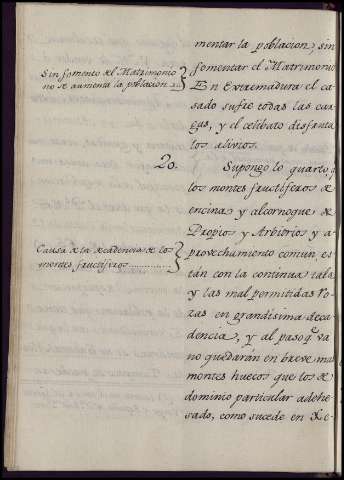 mentar la poblacion, sin
fomentar el Matrimonio
Sin fomento del Matrimonio
no se aumenta la poblacion ...
En Extremadura el ca
sado sufre todas las car
gas, y el celibato disfruta
los alivios.
20.
Supongo lo quarto, q
los montes fructiferos de
encina y alcornoque de
Propios y Arbitrios y a
Causa de la decadencia de los
montes fructiferos ............
provechamiento comun, es
tán con la continua tala
y las mal permitidas Ro
zas en grandisima deca
dencia, y al paso q.e va
no quedarán en breve mas
montes huecos que los de
dominio particular adehe
sado, como sucede en Xe-